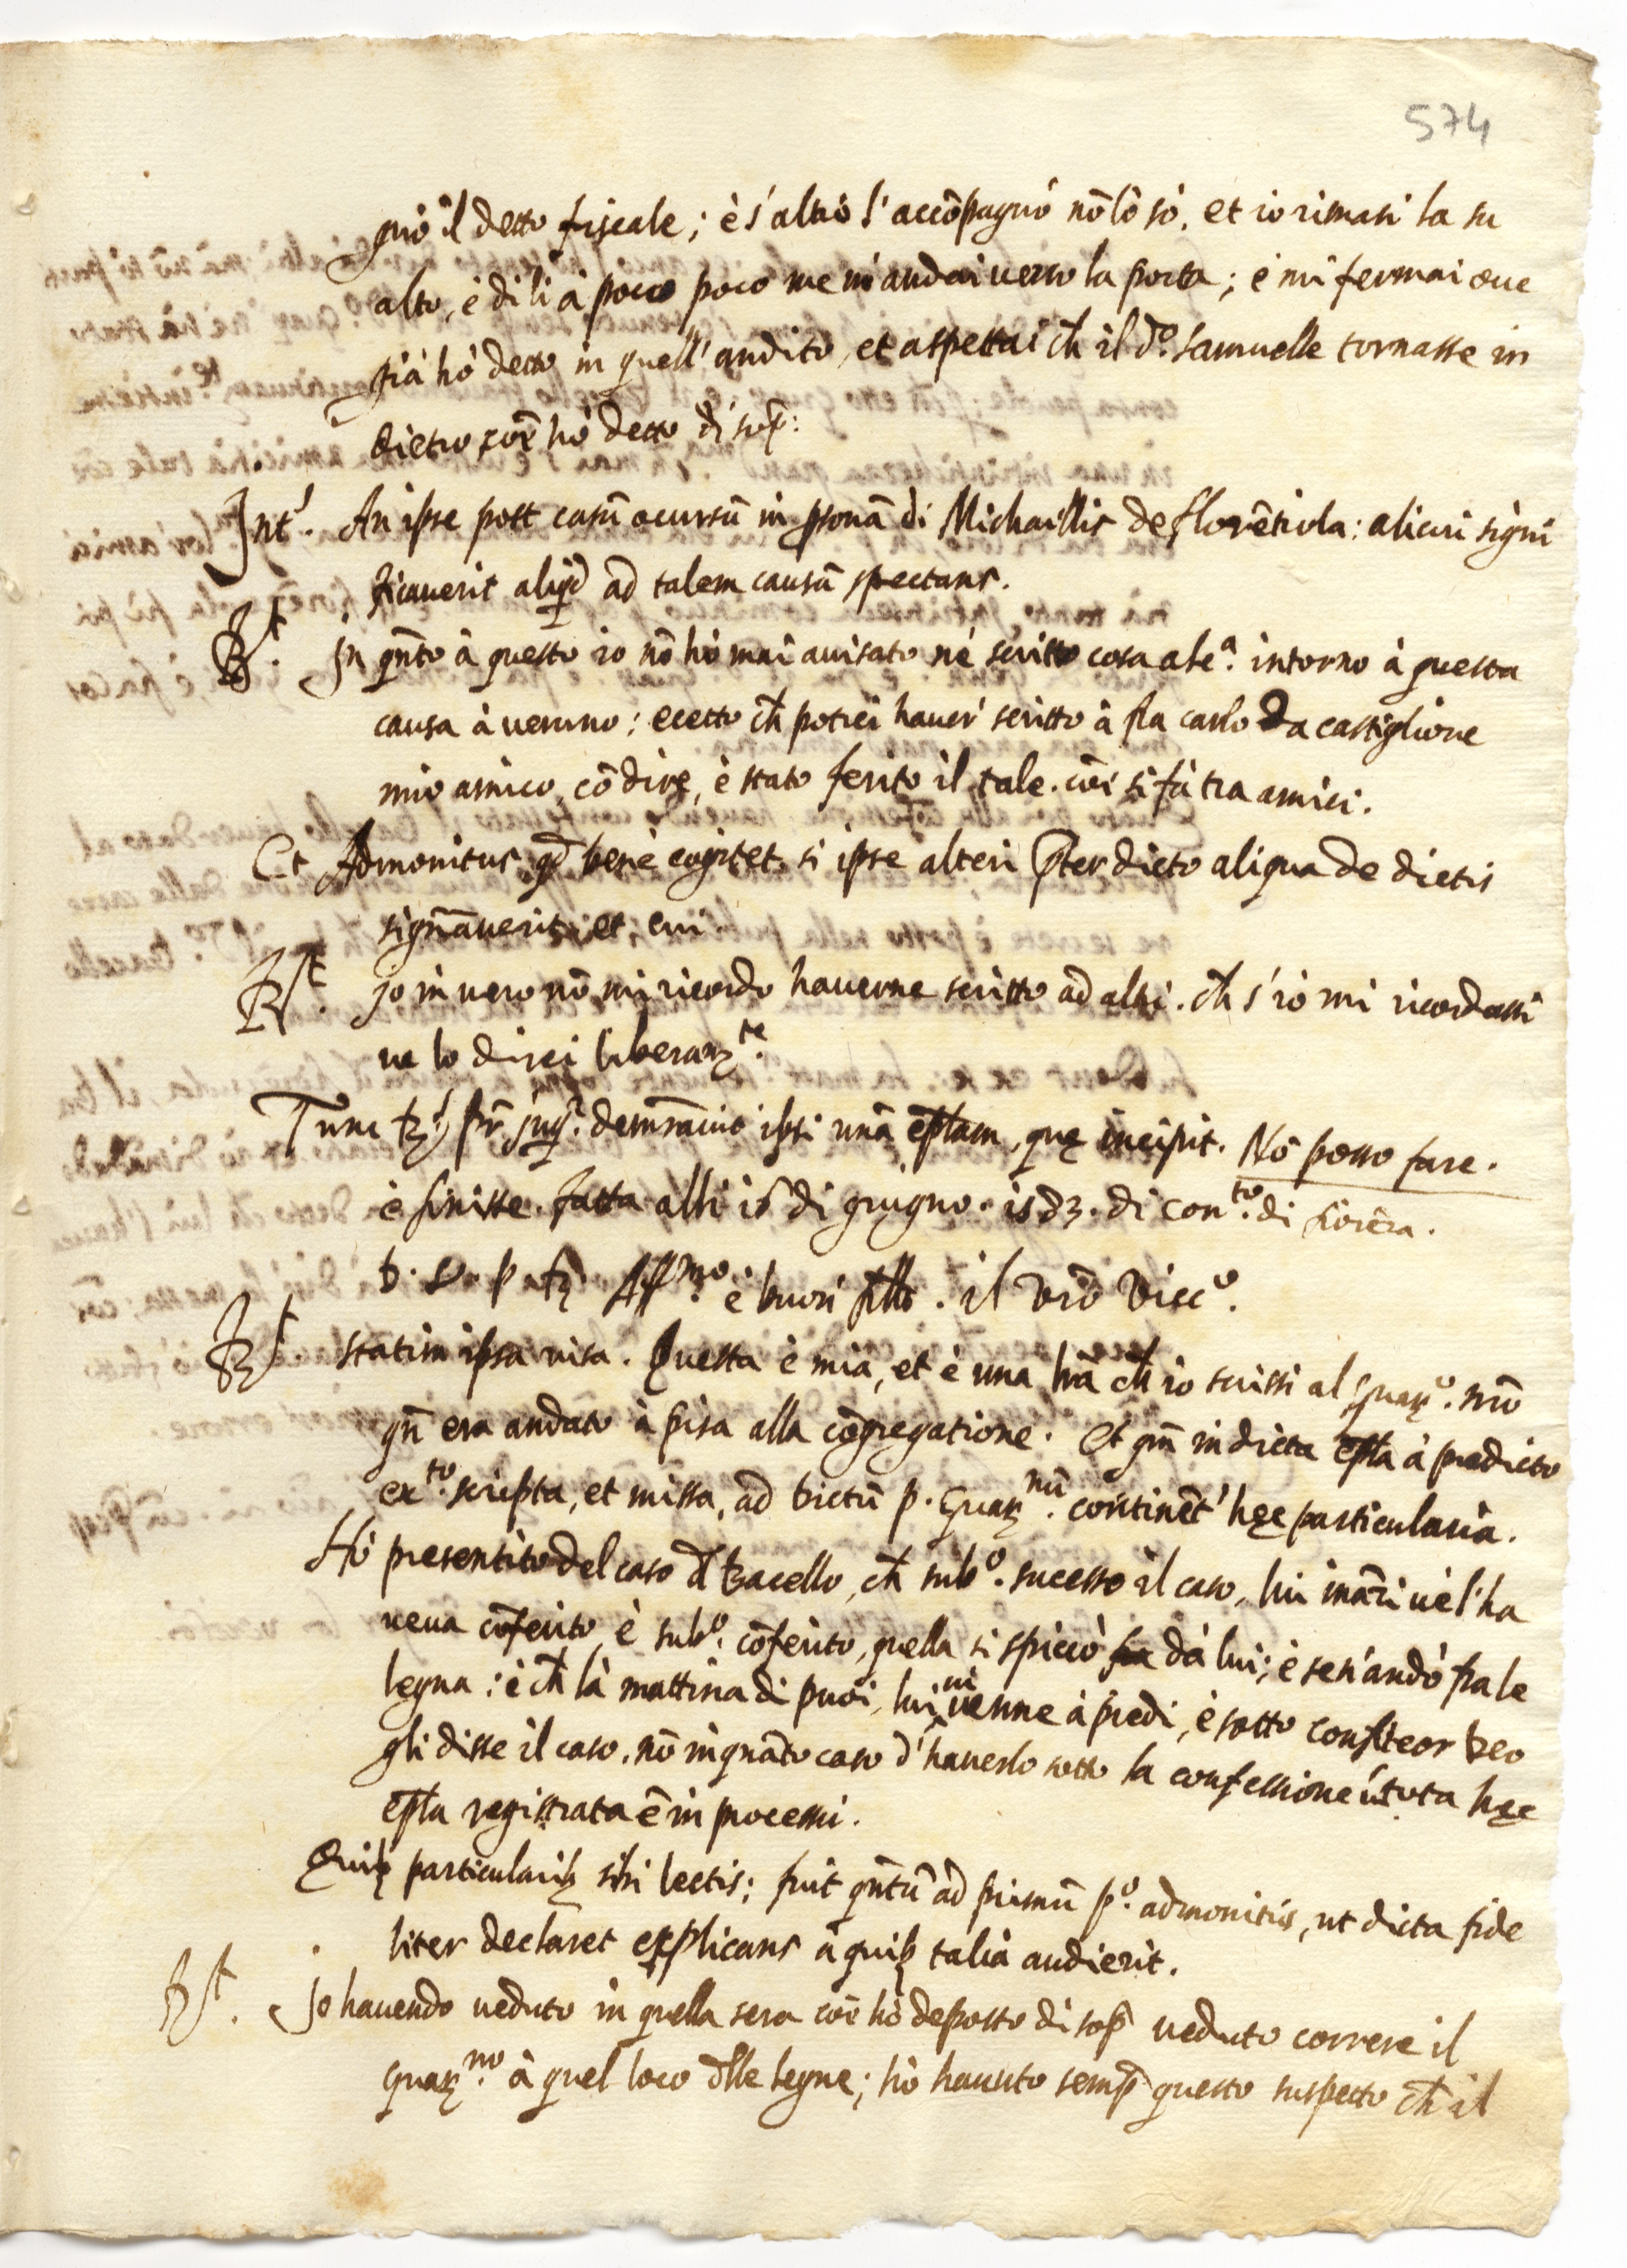 574
gnò il detto fiscale; è s'altrò l'accōpagnò nō lò sò. et io rimasi la su
alto, è di lì à poco poco me n'andai verso la porta; è mi fermai oue
già hò detto in quell'andito, et aspettai ch̄ il dº. Samuelle tornasse in
dietro, com̄ hò detto di sop̄:
Int'. An ipse post casū ocursū in p̄sonā di Michaillis de florētiola: alicui signi
ficauerit aliq̄d ad talem causā spectans.
Rt. In qn̄to à questo io nō hò mai auisato nè scritto cosa alcª. intorno à questa
causa à veruno: ecetto ch̄ potrei hauer' scritto à fra carlo da castiglione
mio amico, cō dire, è stato ferito il tale. cōi si fà tra amici.
Et Admonitus q̄d benè cogitet, si ipse alteri p̄ter dicto aliqua de dictis
sign̄auerit, et, cui.
Rt. Io in uero nō mi ricordo hauerne scritto ad altri. ch̄ s'io mi ricordassi
ue lo direi liberamte.
Tunc p̄r inq. demr̄auit ipsi unā ep̄lam, quę incipit. Nō posso fare.
è finisse. fatta alli 16 di giugno. di conto. di fiorēza.
Affmo. è buon fillo. il vrō viscº.
Rt. statim ipsa uisa. Questa è mia, et è una lrā ch̄ io scrissi al Guarº. nrō
qn̄ era andato à pisa alla cōgregatione. Et qm̄ in dicta ep̄la à predicto
exto. scripta, et missa, ad dictū p. Guarnū. continēt' hęc particularia.
Hò presentito del caso d̄l bacello, ch̄ subº. sucesso il caso, lui ināzi uè l'ha
ueua cōferito, è subº. cōferito, quella si spiccò fra dà lui; è se n'andò fra le
legna: è ch̄ là mattina di puoi, lui ui uenne à piedi, è sotto confiteor deo
gli disse il caso. nō in quāto caso d'hauerlo sotto la confessione ut tota hęc
ep̄la registrata ē in processi.
Quibꝫ particularibꝫ sibi lectis; fuit qn̄tū ad primū pº. admonitus, ut dicta fide
liter declaret explicans à quibꝫ talia audierit.
Rt. Io hauendo ueduto in quella sera com̄ hò deposto di sop̄ ueduto correre il
Guarno. à quel loco d̄lle legne; hò hauuto semp̄ questo suspetto ch̄ il